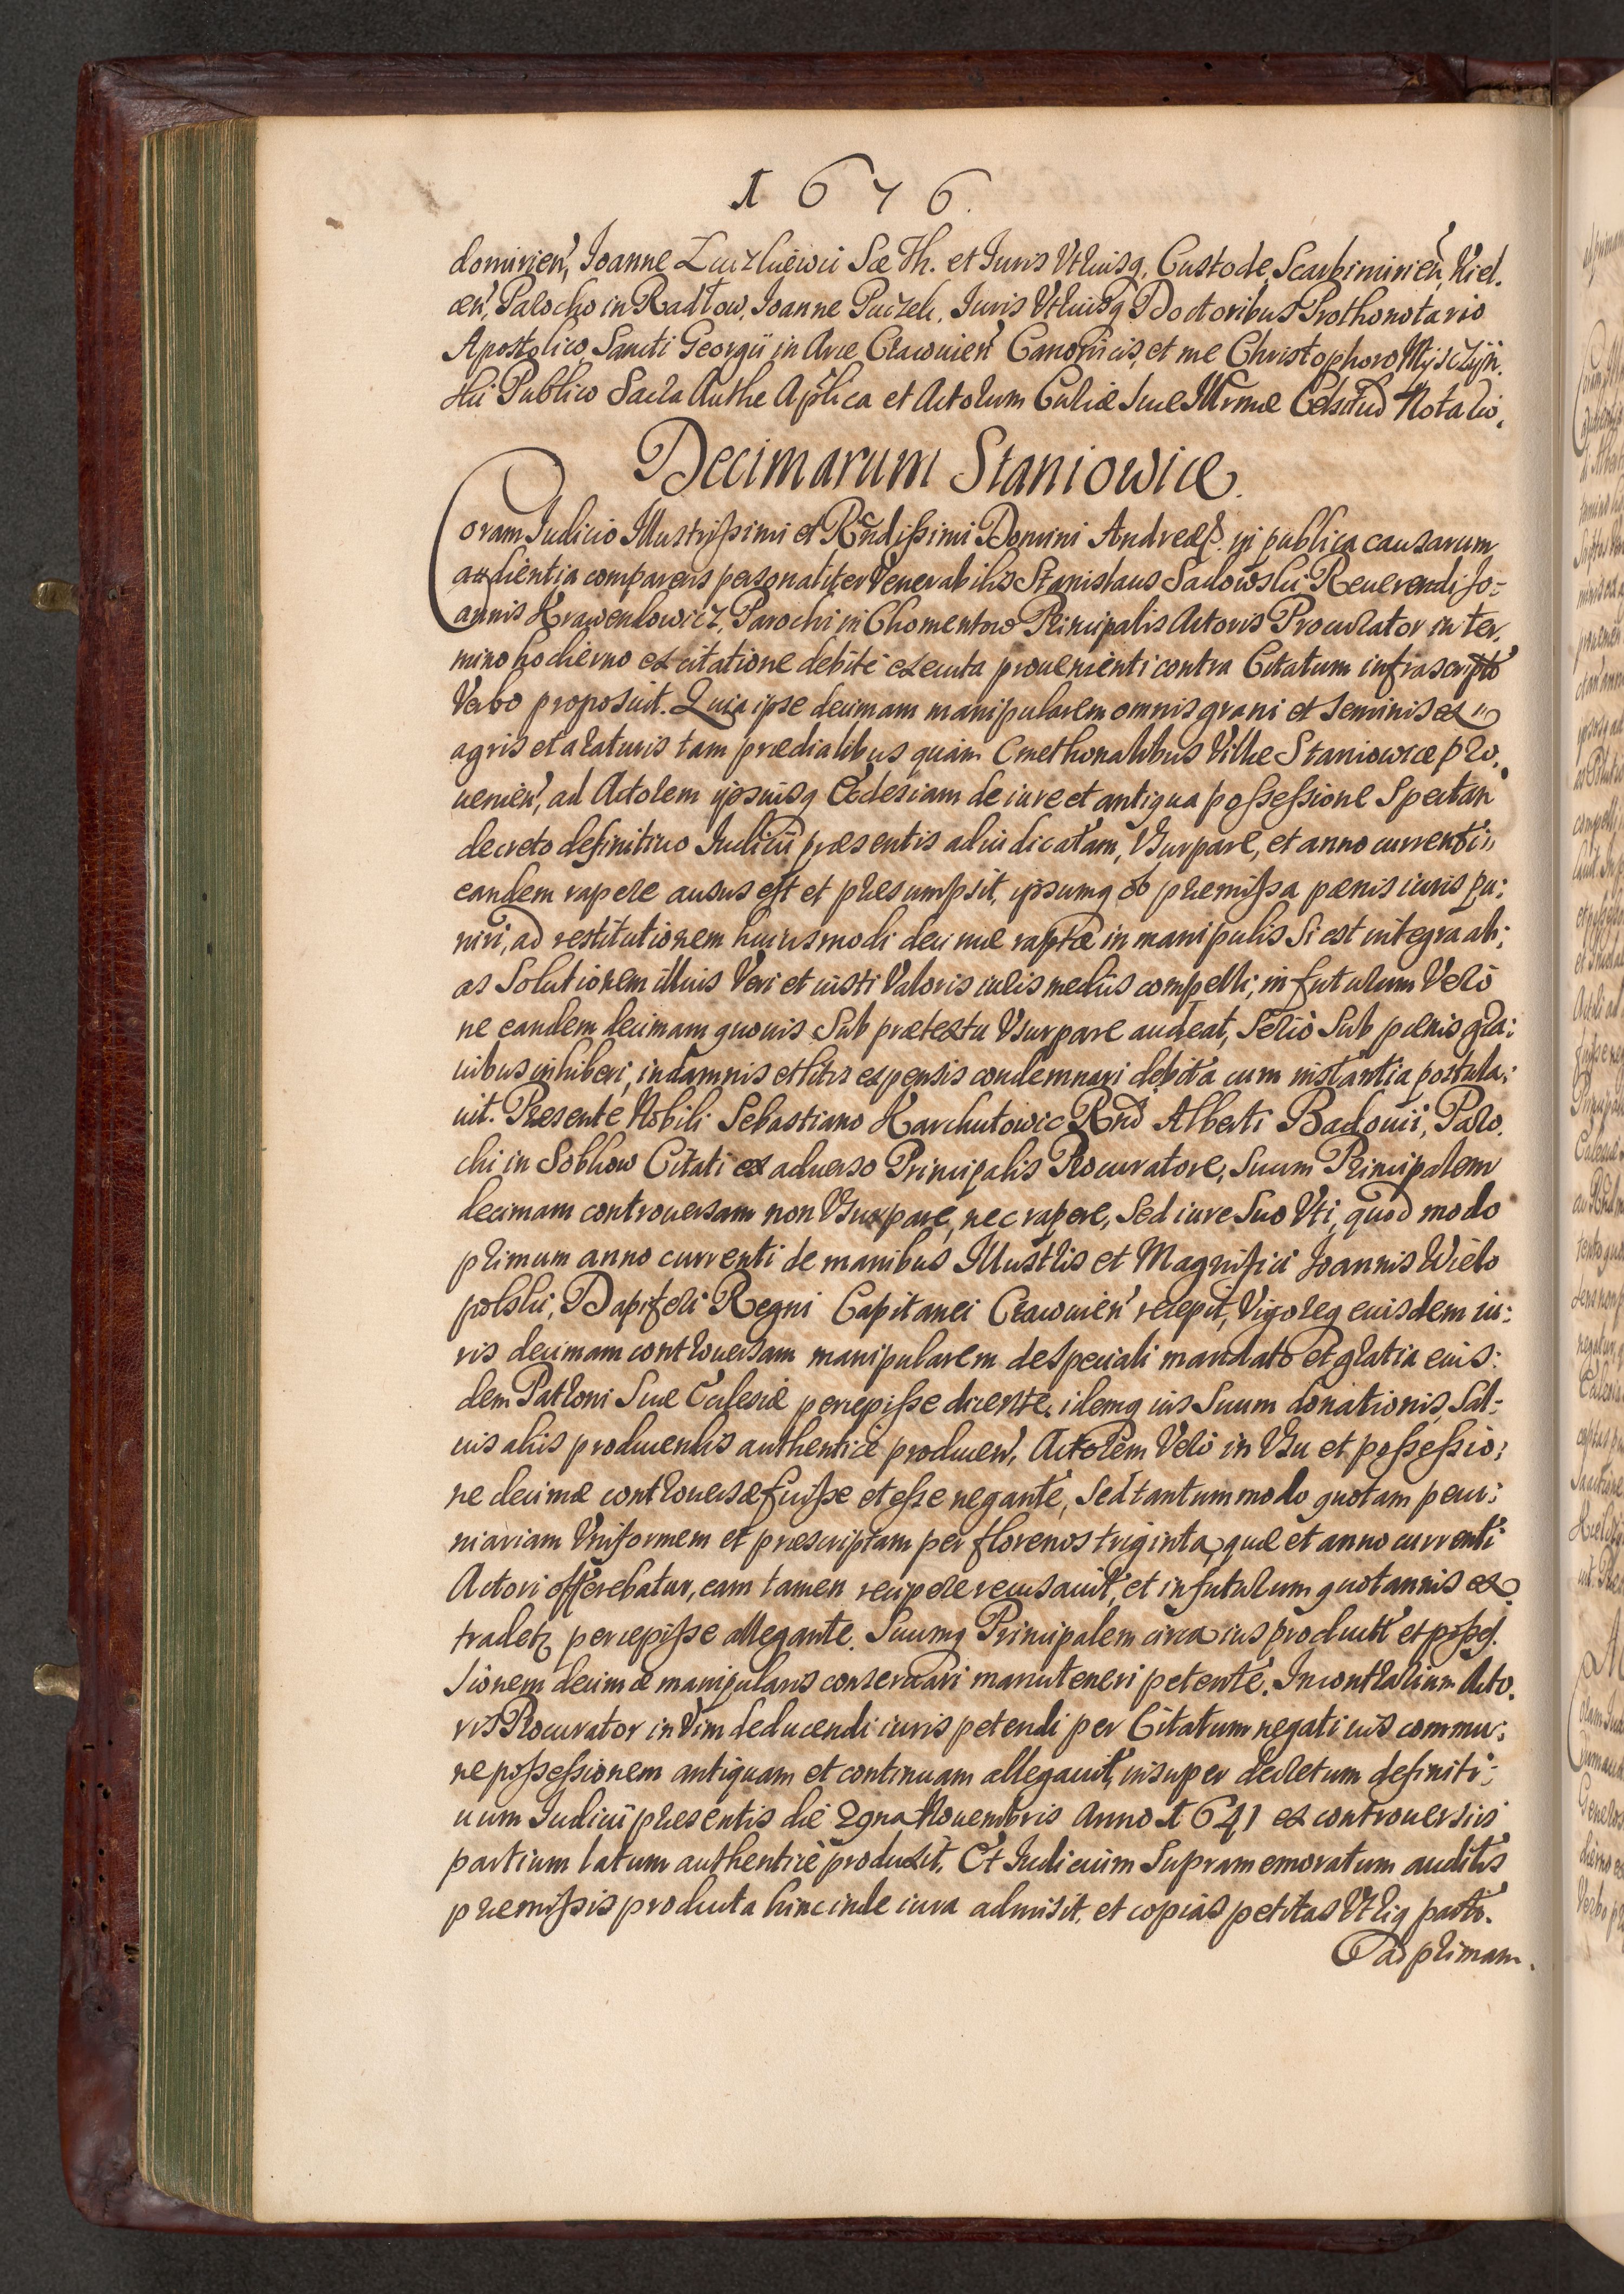 1676.
domirien', Joanne Zuczkiewii Sæ Th. et Iuris Vtriusq, Custode Scarbimirien', Kiel.
cen', Parocho in Radłow, Joanne Paczek, Iuris Vtriusq Doctoribus Prothonotario
Apostolico, Sancti Georgii in Arce Cracouien' Canonicis, et me Christophoro Mysczyn.
ski Publico Sacra Authe Aplica et Actorum Curiæ Suæ Illrmæ Celsitud Notario.
Decimarum Staniowice.
Coram Iudicio Illustrissimi et Rndissimi Domini Andreæ p. in publica causarum
audientia comparens personaliter Venerabilis Stanislaus Sadowski Reuerendi Jo-
annis Krawenkowicz, Parochi in Chomentow Principalis Actoris Procurator in ter.
mino hodierno ex citatione debite executa prouenienti contra Citatum infrascriptū
Verbo proposuit. Quia ipse decimam manipularem omnis grani et seminis ex
agris et araturis tam prædialibus quàm Cmethonalibus Villæ Staniowice pro.
uenien', ad Actorem ipsiusq Ecclesiam de iure et antiqua possessione Spectan'
decreto definitiuo Iudicii præsentis adiudicatam, Vsurpare, et anno currenti
eandem rapere ausus est et præsumpsit, ipsumq ob præmissa pœnis iuris pu:
niri, ad restitutionem huiusmodi decimæ raptæ in manipulis si est integra ali:
as Solutionem illius Veri et iusti Valoris iuris mediis compelli, in futurum Verò
ne eandem decimam quouis Sub prætextu Vsurpare audeat, Seriò Sub pœnis gra:
uibus inhiberi, in damnis et litis expensis condemnari debita cum instantia postula:
uit. Præsente Nobili Sebastiano Karchutowic Rnd Alberti Badouii, Paro.
chi in Sobkow Citati ex aduerso Principalis Procuratore, Suum Principalem
decimam controuersam non Vsurpare, nec rapere, Sed iure Suo Vti, quod modo
primum anno currenti de manibus Illustris et Magnifici Joannis Wielo
polski, Dapiferi Regni Capitanei Cracouien' recepit, Vigoreq eiusdem iu:
ris decimam controuersam manipularem de speciali mandato et gratia eius:
dem Patroni Suæ Ecclesiæ percepisse dicente, idemq ius Suum donationis, Sal:
uis aliis producendis authentice producen', Actorem Verò in Vsu et possessio:
ne decimæ controuersæ fuisse et esse negante, Sed tantummodo quotam pecu:
niariam Vniformem et præscriptam per florenos triginta, quæ et anno currenti
Actori offerebatur, eam tamen recipere recusauit, et in futurum quotannis ex
tradetz percepisse allegante. Suumq Principalem circa ius productū et posses.
sionem decimæ manipularis conseruari manuteneri petente. In contrarium Acto.
ris Procurator in Vim deducendi iuris petendi per Citatum negati ius commu:
ne possessionem antiquam et continuam allegauit, insuper decretum definiti:
uum Iudicii præsentis die 29na Nouembris Anno 1641 ex controuersiis
partium latum authentice produxit. Et Iudicium Supramemoratum auditis
præmissis producta hincinde iura admisit, et copias petitas Vtriq parti.
ad primam.